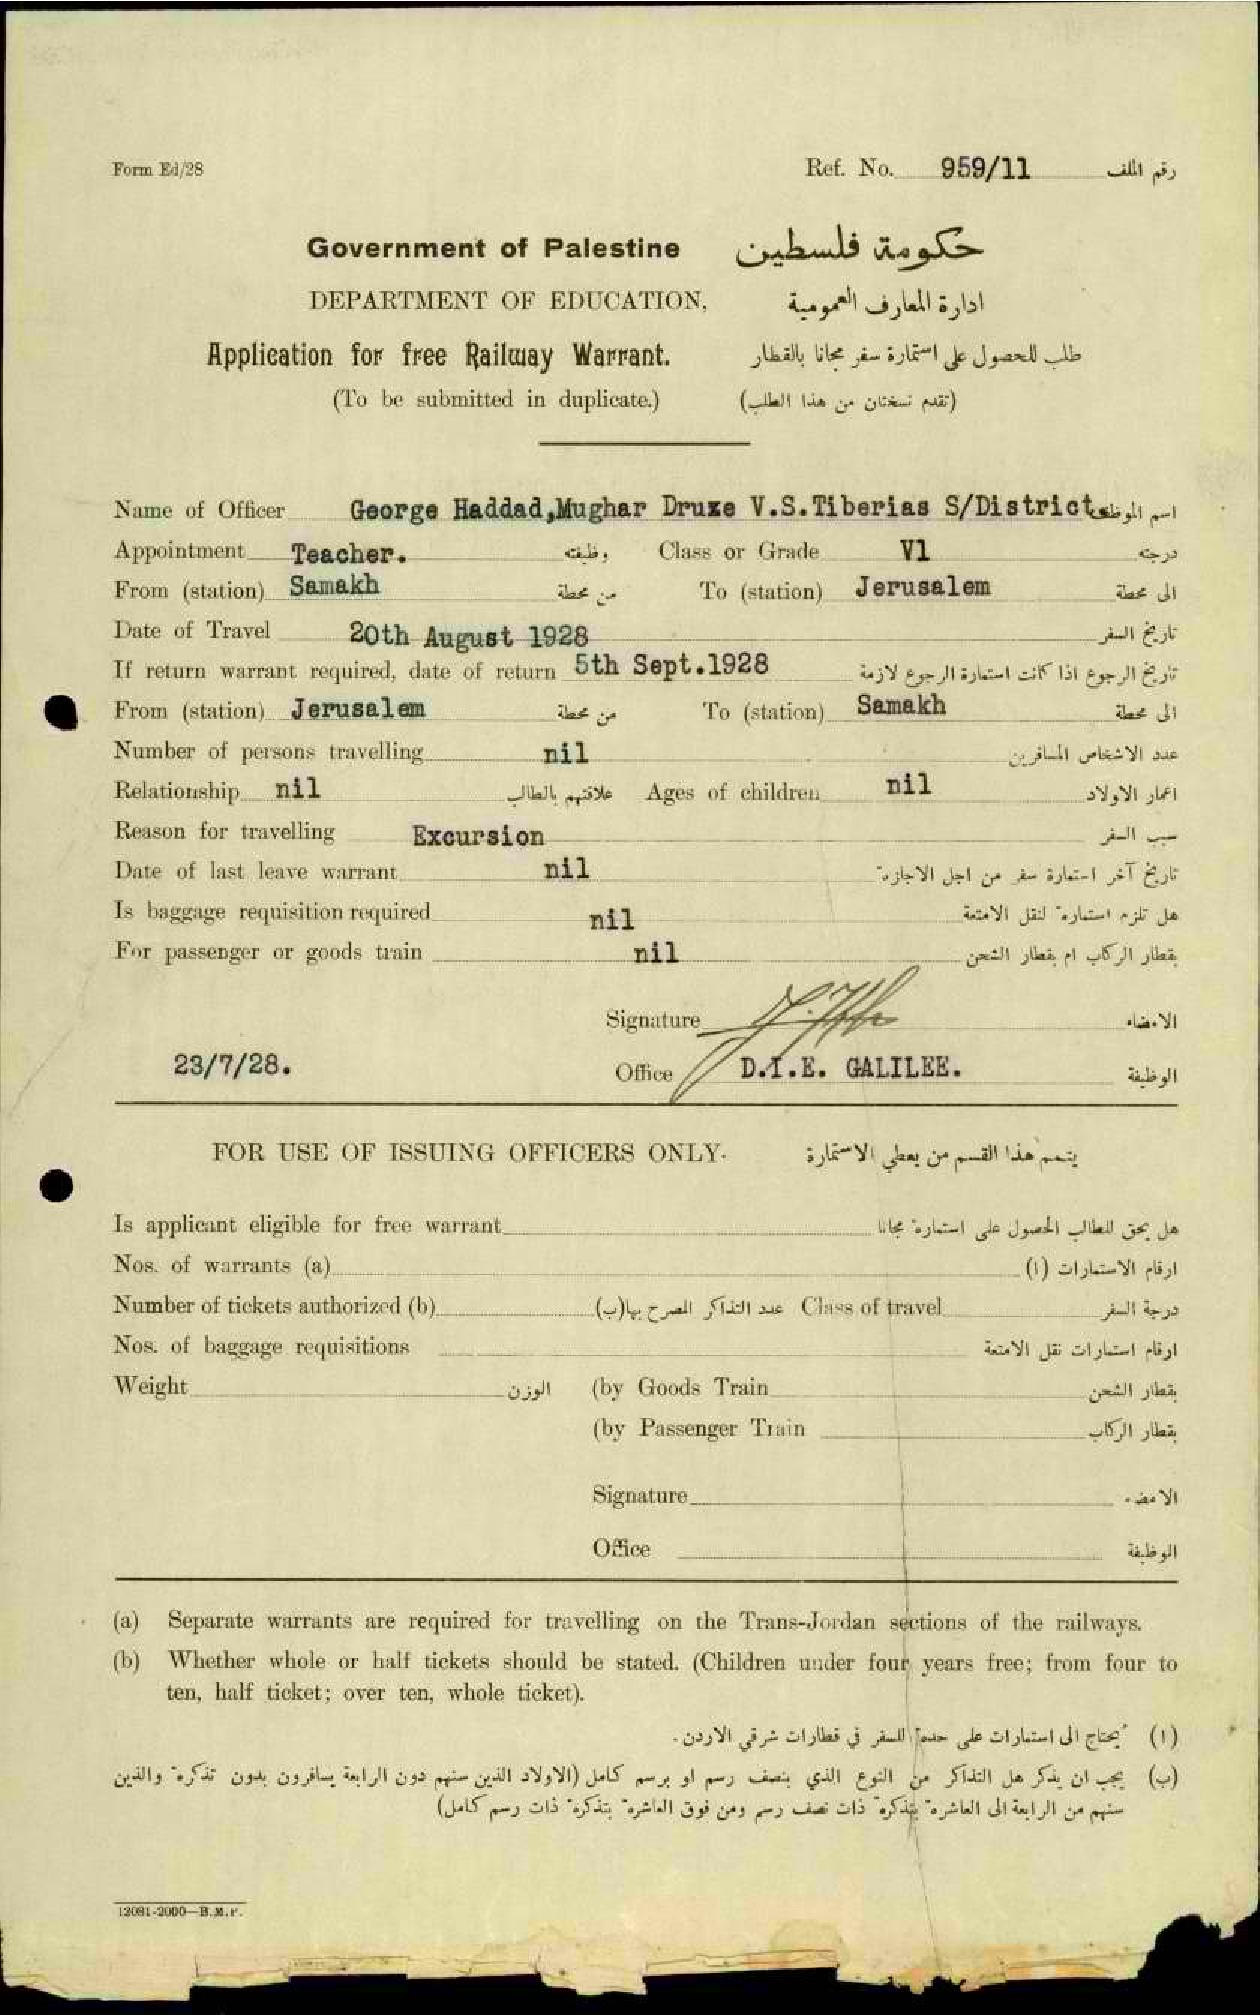 Form Ed/28 Ref. No. 959/11 رقم الملف
Government of Palestine حكومة فلسطين
DEPARTMENT OF EDUCATION. ادارة المعارف العمومية
Application for free Railway Warrant. طلب للحصول على استمارة سفر مجانا بالقطار
(To be submitted in duplicate.) (تقدم نسختان من هذا الطلب)
Name of Officer George Haddad,Mughar Druze V.S.Tiberias S/District. اسم الموظف
Appointment Teacher. وظيفته Class or Grade V1 درجته
From (station) Samakh من محطة To (station) Jerusalem الى محطة
Date of Travel 20th August 1928 تاريخ السفر
If return warrant required, date of return 5th Sept.1928 تاريخ الرجوع اذا كانت استمارة الرجوع لازمة
From (station) Jerusalem من محطة To (station) Samakh الى محطة
Number of persons travelling nil عدد الاشخاص المسافرين
Relationship nil علاقتهم بالطالب Ages of children nil اعمار الاولاد
Reason for travelling Excursion سبب السفر
Date of last leave warrant nil تاريخ آخر استمارة سفر من اجل الاجازة
Is baggage requisition required nil هل تلزم استمارة لنقل الامتعة
For passenger or goods train nil بقطار الركاب ام بقطار الشحن
Signature الامضاء
23/7/28. Office D.I.E. GALILEE. الوظيفة
FOR USE OF ISSUING OFFICERS ONLY. يتمم هذا القسم من يعطي الاستمارة
Is applicant eligible for free warrant هل يحق للطالب الحصول على استمارة مجانا
Nos. of warrants (a) ارقام الاستمارات (ا)
Number of tickets authorized (b) عدد التذاكر المصرح بها(ب) Class of travel درجة السفر
Nos. of baggage requisitions ارقام استمارات نقل الامتعة
Weight الوزن (by Goods Train بقطار الشحن
(by Passenger Train بقطار الركاب
Signature الامضاء
Office الوظيفة
(a) Separate warrants are required for travelling on the Trans-Jordan sections of the railways.
(b) Whether whole or half tickets should be stated. (Children under four years free; from four to
ten, half ticket; over ten, whole ticket).
(ا) يُحتاج الى استمارات على حدة للسفر في قطارات شرقي الاردن.
(ب) يجب ان يذكر هل التذاكر من النوع الذي بنصف رسم او برسم كامل (الاولاد الذين سنهم دون الرابعة يسافرون بدون تذكرة والذين
سنهم من الرابعة الى العاشرة بتذكرة ذات نصف رسم ومن فوق العاشرة بتذكرة ذات رسم كامل)
12081-2000—B.M.P.